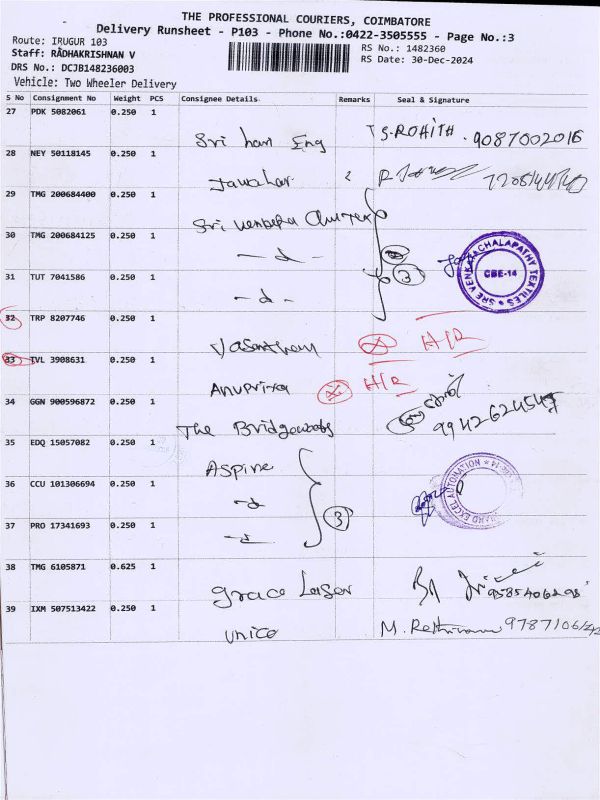 THE PROFESSIONAL COURIERS, COIMBATORE
Delivery Runsheet - P103 - Phone No.:0422-3505555 - Page No.:3
Route: IRUGUR 103
Staff: RADHAKRISHNAN V
DRS No.: DCJB148236003
Vehicle: Two Wheeler Delivery
RS No.: 1482360
RS Date: 30-Dec-2024
S No Consignment No Weight PCS Consignee Details Remarks Seal & Signature
27 PDK 5082061 0.250 1
Sri hari Eng S.ROHITH. 9087002016
28 NEY 50118145 0.250 1
Jawahar
29 TMG 200684400 0.250 1
Sri
30 TMG 200684125 0.250 1
- d -
SRE VENKATACHALAPATHY TEXTILES
CBE-14
31 TUT 7041586 0.250 1
- d -
3
32 TRP 8207746 0.250 1
Vasantham H/R
33 TVL 3908631 0.250 1
Anupriya H/R
34 GGN 900596872 0.250 1
The
35 EDQ 15057082 0.250 1
Aspire
36 CCU 101306694 0.250 1
- d
EXCEL AUTOMATION
37 PRO 17341693 0.250 1
- d -
3
38 TMG 6105871 0.625 1
grace Laser
39 IXM 507513422 0.250 1
unice M.